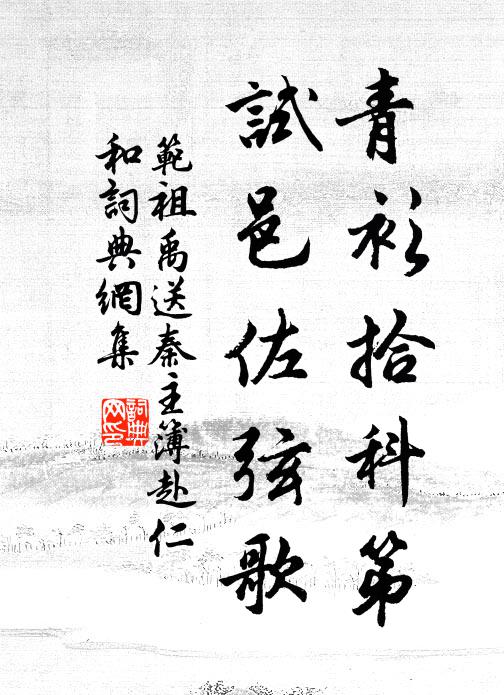 青衫拾科第
試邑佐弦歌
範祖禹送秦主簿赴仁
和詞典網集
詞典
网印